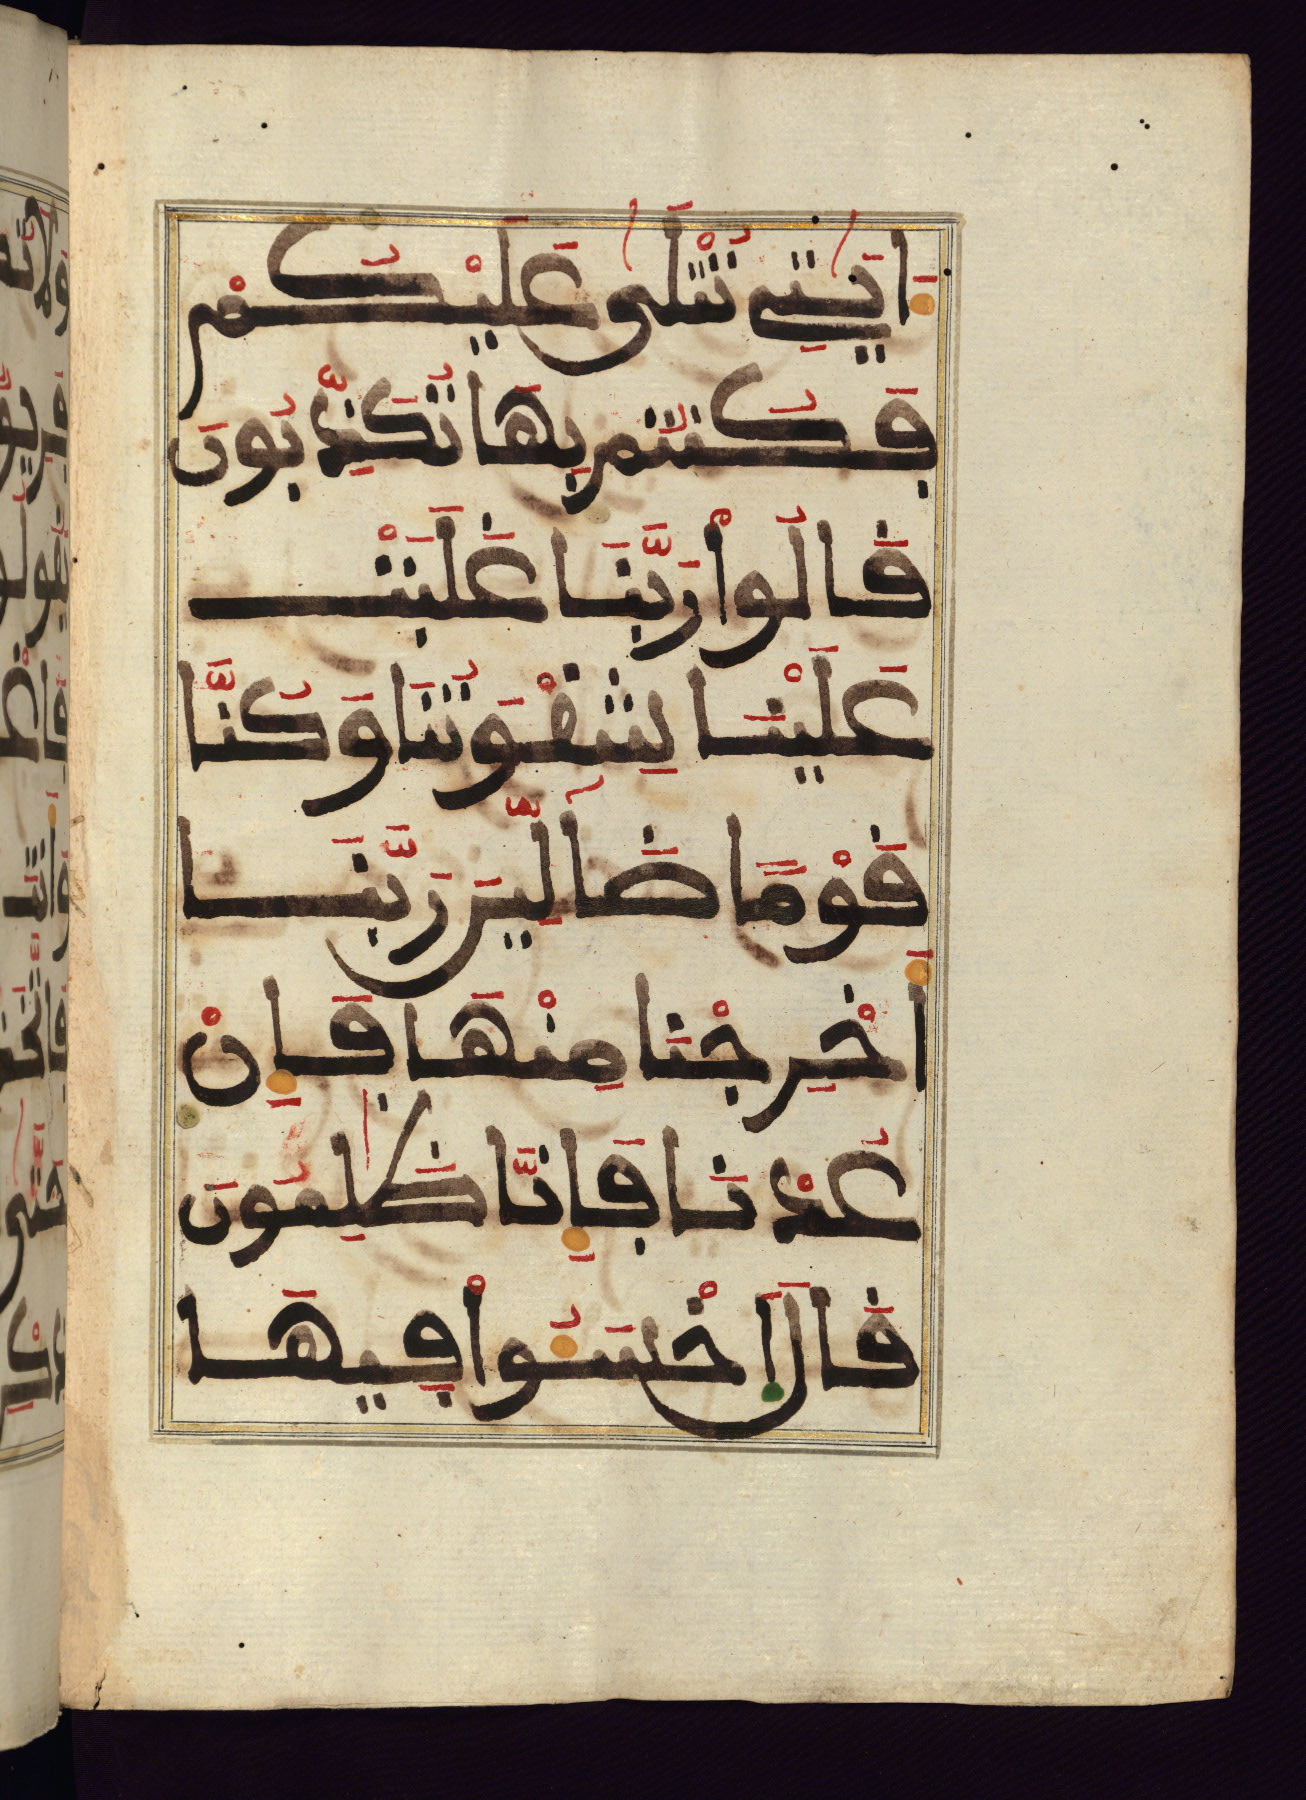 ءَايَٰتِے تُتْلَىٰ عَلَيْكُمْ
فَكُنتُم بِهَا تُكَذِّبُونَ
قَالُواْ رَبَّنَا غَلَبَتْ
عَلَيْنَا شِقْوَتُنَا وَكُنَّا
قَوْمًا ضَآلِّينَ رَبَّنَا
أَخْرِجْنَا مِنْهَا فَإِنْ
عُدْنَا فَإِنَّا ظَٰلِمُونَ
قَالَ اَخْسَـُٔواْ فِيهَا